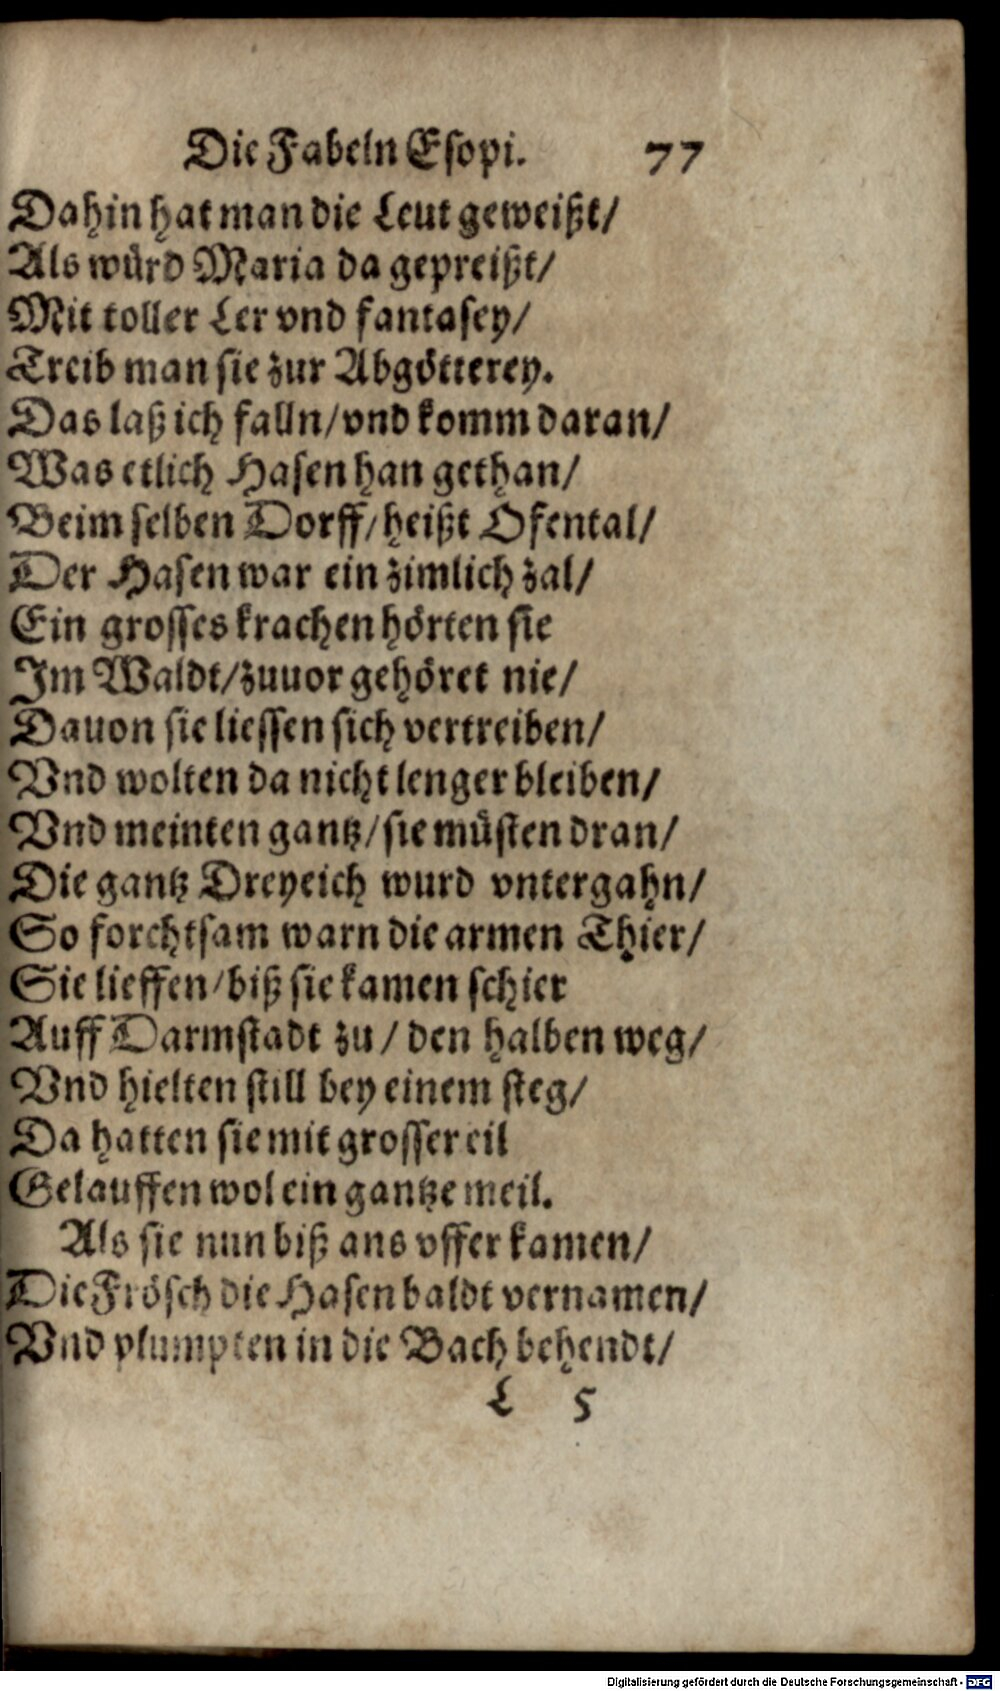 Die Fabeln Esopi. 77
Dahin hat man die Leut geweißt/
Als wuͤrd Maria da gepreißt/
Mit toller Ler vnd fantasey/
Treib man sie zur Abgoͤtterey.
Das laß ich falln/vnd komm daran/
Was etlich Hasen han gethan/
Beim selben Dorff/heißt Ofental/
Der Hasen war ein zimlich zal/
Ein grosses krachen hoͤrten sie
Im Waldt/zuuor gehoͤret nie/
Dauon sie liessen sich vertreiben/
Vnd wolten da nicht lenger bleiben/
Vnd meinten gantz/sie muͤsten dran/
Die gantz Dreyeich wurd vntergahn/
So forchtsam warn die armen Thier/
Sie lieffen/biß sie kamen schier
Auff Darmstadt zu/ den halben weg/
Vnd hielten still bey einem steg/
Da hatten sie mit grosser eil
Gelauffen wol ein gantze meil.
Als sie nun biß ans vffer kamen/
Die Froͤsch die Hasen baldt vernamen/
Vnd plumpten in die Bach behendt/
L 5
Digitalisierung gefördert durch die Deutsche Forschungsgemeinschaft - DFG